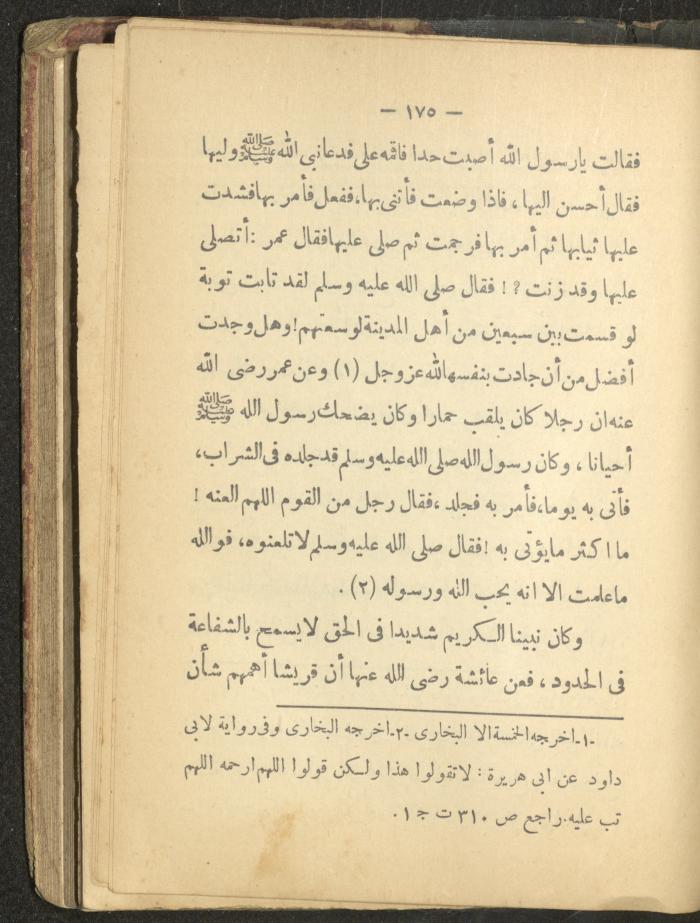 — ١٧٥ —
فقالت يارسول الله أصبت حدا فاقمه على فدعا نبي الله ﷺ وليها
فقال أحسن اليها ، فاذا وضعت فأتنى بها، ففعل فأمر بها فشدت
عليها ثيابها ثم أمر بها فرجمت ثم صلى عليها فقال عمر : أتصلى
عليها وقد زنت ؟ ! فقال صلى الله عليه وسلم لقد تابت توبة
لو قسمت بين سبعين من أهل المدينة لوسعتهم! وهل وجدت
أفضل من أن جادت بنفسها لله عز وجل (١) وعن عمر رضى الله
عنه ان رجلا كان يلقب حمارا وكان يضحك رسول الله ﷺ
أحيانا ، وكان رسول الله صلى الله عليه وسلم قد جلده فى الشراب،
فأتى به يوما، فأمر به فجلد ، فقال رجل من القوم اللهم العنه !
ما اكثر مايؤتى به ! فقال صلى الله عليه وسلم لا تلعنوه، فوالله
ماعلمت الا انه يحب الله ورسوله (٢) .
وكان نبينا الكريم شديدا فى الحق لايسمح بالشفاعة
فى الحدود ، فعن عائشة رضى الله عنها أن قريشا أهمهم شأن
-١- اخرجه الخمسة الا البخارى -٢- اخرجه البخارى وفى رواية لابى
داود عن ابى هريرة : لاتقولوا هذا ولكن قولوا اللهم ارحمه اللهم
تب عليه. راجع ص ٣١٠ ت ج ١ .